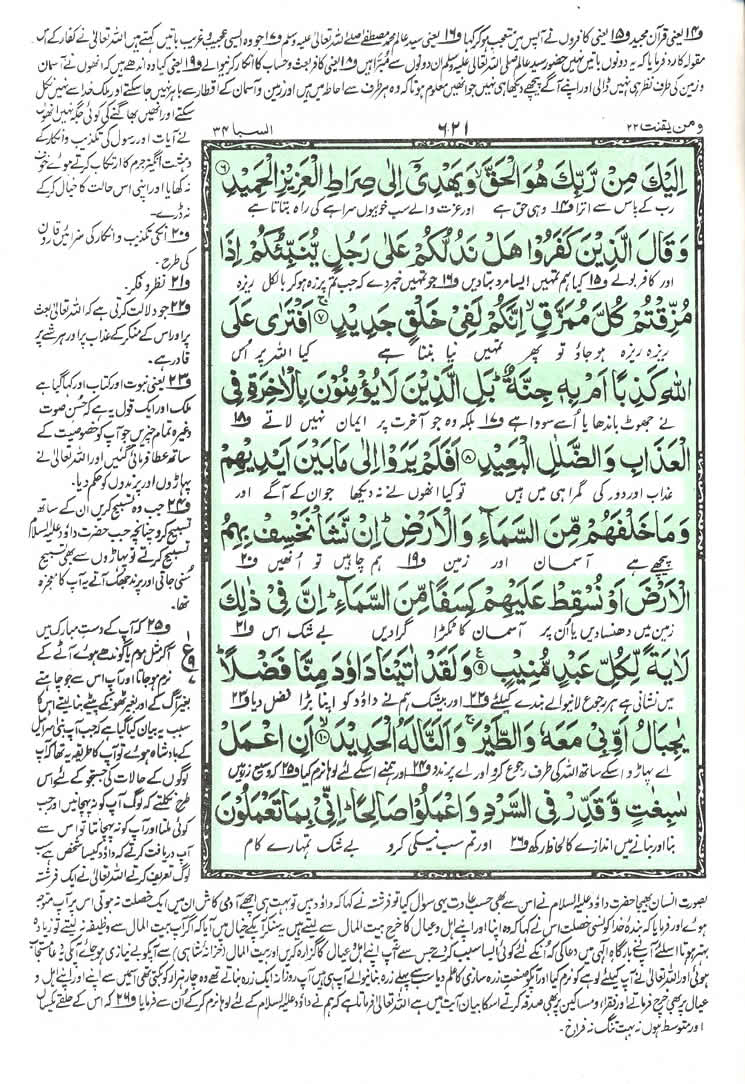 و۱۴ یعنی قرآن مجید و۱۵ یعنی کافروں نے آپس میں متعجب ہو کر کہا و۱۶ یعنی سید عالم محمد مصطفےٰ صلے اللہ تعالیٰ علیہ وسلم و۱۷ جو وہ ایسی عجیب و غریب باتیں کہتے ہیں اللہ تعالیٰ نے کفار کے اس
مقولہ کا رد فرمایا کہ یہ دونوں باتیں نہیں حضور سید عالم صلی اللہ تعالیٰ علیہ وسلم ان دونوں سے مبرّا ہیں و۱۸ یعنی کافر بعث و حساب کا انکار کرنیوالے و۱۹ یعنی کیا وہ اندھے ہیں کہ انھوں نے آسمان
و زمین کی طرف نظر ہی نہیں ڈالی اور اپنے آگے پیچھے دیکھا ہی نہیں جو انھیں معلوم ہوتا کہ وہ ہر طرف سے احاطہ میں ہیں اور زمین و آسمان کے اقطار سے باہر نہیں جا سکتے اور ملک خدا سے نہیں نکل
سکتے اور انھیں بھاگنے کی کوئی جگہ نہیں انھوں
نے آیات اور رسول کی تکذیب و انکار کے
دہشت انگیز جرم کا ارتکاب کرتے ہوئے خوف
نہ کھایا اور اپنی اس حالت کا خیال کر کے
نہ ڈرے۔
و۲۰ انکی تکذیب و انکار کی سزا میں قارون
کی طرح۔
و۲۱ نظر و فکر۔
و۲۲ جو دلالت کرتی ہے کہ اللہ تعالیٰ بعث
پر اور اس کے منکر کے عذاب پر اور ہر شے پر
قادر ہے۔
و۲۳ یعنی نبوت اور کتاب اور کہا گیا ہے
ملک اور ایک قول یہ ہے کہ حسن صوت
وغیرہ تمام چیزیں جو آپ کو خصوصیت کے
ساتھ عطا فرمائی گئیں اور اللہ تعالیٰ نے
پہاڑوں اور پرندوں کو حکم دیا۔
و۲۴ جب وہ تسبیح کریں ان کے ساتھ
تسبیح کرو چنانچہ جب حضرت داؤد علیہ السلام
تسبیح کرتے تو پہاڑوں سے بھی تسبیح
سنی جاتی اور پرند جھک آتے یہ آپ کا معجزہ
تھا۔
و۲۵ کہ آپ کے دست مبارک میں
آکر مثل موم یا گوندھے ہوئے آٹے کے
نرم ہو جاتا اور آپ اس سے جو چاہتے
بغیر آگ کے اور بغیر ٹھونکے پیٹے بنا لیتے اس کا
سبب یہ بیان کیا گیا ہے کہ جب آپ بنی اسرائیل
کے بادشاہ ہوئے تو آپ کا طریقہ یہ تھا کہ آپ
لوگوں کے حالات کی جستجو کے لئے اس
طرح نکلتے کہ لوگ آپ کو نہ پہچانیں اور جب
کوئی ملتا اور آپ کو نہ پہچانتا تو اس سے
آپ دریافت کرتے کہ داؤد کیسا شخص ہے سب
لوگ تعریف کرتے اللہ تعالیٰ نے ایک فرشتہ
ومن یقنت ۲۲
۶۲۱
السبا ۳۴
اِلَيْكَ مِنْ رَّبِّكَ هُوَ الْحَقَّ وَيَهْدِيْٓ اِلٰى صِرَاطِ الْعَزِيْزِ الْحَمِيْدِ ۶
رب کے پاس سے اترا و۱۴ وہی حق ہے اور عزت والے سب خوبیوں سراہے کی راہ بتاتا ہے
وَقَالَ الَّذِيْنَ كَفَرُوْا هَلْ نَدُلُّكُمْ عَلٰى رَجُلٍ يُّنَبِّئُكُمْ اِذَا
اور کافر بولے و۱۵ کیا ہم تمہیں ایسا مرد بتا دیں و۱۶ جو تمہیں خبر دے کہ جب تم پرزہ ہو کر بالکل ریزہ
مُزِّقْتُمْ كُلَّ مُمَزَّقٍ اِنَّكُمْ لَفِيْ خَلْقٍ جَدِيْدٍ ۷ اَفْتَرٰى عَلَى
ریزہ ریزہ ہو جاؤ تو پھر تمہیں نیا بننا ہے کیا اللہ پر اُس
اللّٰهِ كَذِبًا اَمْ بِهٖ جِنَّةٌ بَلِ الَّذِيْنَ لَا يُؤْمِنُوْنَ بِالْاٰخِرَةِ فِي
نے جھوٹ باندھا یا اُسے سودا ہے و۱۷ بلکہ وہ جو آخرت پر ایمان نہیں لاتے و۱۸
الْعَذَابِ وَالضَّلٰلِ الْبَعِيْدِ ۸ اَفَلَمْ يَرَوْا اِلٰى مَا بَيْنَ اَيْدِيْهِمْ
عذاب اور دور کی گمراہی میں ہیں تو کیا انھوں نے نہ دیکھا جو ان کے آگے اور
وَمَا خَلْفَهُمْ مِّنَ السَّمَآءِ وَالْاَرْضِ اِنْ نَّشَاْ نَخْسِفْ بِهِمُ
پیچھے ہے آسمان اور زمین و۱۹ ہم چاہیں تو اُنھیں و۲۰
الْاَرْضَ اَوْ نُسْقِطْ عَلَيْهِمْ كِسَفًا مِّنَ السَّمَآءِ اِنَّ فِيْ ذٰلِكَ
زمین میں دھنسا دیں یا اُن پر آسمان کا ٹکڑا گرا دیں بے شک اس و۲۱
لَاٰيَةً لِّكُلِّ عَبْدٍ مُّنِيْبٍ ۹ وَلَقَدْ اٰتَيْنَا دَاوٗدَ مِنَّا فَضْلًا
میں نشانی ہے ہر رجوع لانیوالے بندے کیلئے و۲۲ اور بیشک ہم نے داؤد کو اپنا بڑا فضل دیا و۲۳
يٰجِبَالُ اَوِّبِيْ مَعَهٗ وَالطَّيْرَ وَاَلَنَّا لَهُ الْحَدِيْدَ ۱۰ اَنِ اعْمَلْ
اے پہاڑو اسکے ساتھ اللہ کی طرف رجوع کرو اور اے پرندو و۲۴ اور ہمنے اسکے لئے لوہا نرم کیا و۲۵ کہ وسیع زرہیں
سٰبِغٰتٍ وَّقَدِّرْ فِي السَّرْدِ وَاعْمَلُوْا صَالِحًا اِنِّيْ بِمَا تَعْمَلُوْنَ
بنا اور بنانے میں اندازے کا لحاظ رکھ و۲۶ اور تم سب نیکی کرو بے شک تمہارے کام
بصورت انسان بھیجا حضرت داؤد علیہ السلام نے اس سے بھی حسب عادت یہی سوال کیا تو فرشتہ نے کہا کہ داؤد ہیں تو بہت ہی اچھے آدمی کاش ان میں ایک خصلت نہ ہوتی اس پر آپ متوجہ
ہوئے اور فرمایا کہ بندۂ خدا کونسی خصلت اس نے کہا کہ وہ اپنا اور اپنے اہل و عیال کا خرچ بیت المال سے لیتے ہیں یہ سنکر آپ کے خیال میں آیا کہ اگر آپ بیت المال سے وظیفہ نہ لیتے تو زیادہ
بہتر ہوتا اسلئے آپ نے بارگاہ الٰہی میں دعا کی کہ اُنکے لئے کوئی ایسا سبب کر دے جس سے آپ اپنے اہل و عیال کا گزارہ کریں اور بیت المال (خزانۂ شاہی) سے آپکو بے نیازی ہو جائے آپکی یہ دعا مستجاب
ہوئی اور اللہ تعالیٰ نے آپ کیلئے لوہے کو نرم کیا اور آپکو صنعت زرہ سازی کا علم دیا سب سے پہلے زرہ بنانیوالے آپ ہی ہیں آپ روزانہ ایک زرہ بناتے تھے وہ چار ہزار کو بکتی تھی اسمیں سے اپنے اور اپنے اہل و
عیال پر بھی خرچ فرماتے اور فقراء و مساکین پر بھی صدقہ کرتے اسکا بیان آیت میں ہے اللہ تعالیٰ فرماتا ہے کہ ہم نے داؤد علیہ السلام کے لئے لوہا نرم کر کے اُن سے فرمایا و۲۶ کہ اس کے حلقے یکساں
اور متوسط ہوں نہ بہت تنگ نہ فراخ۔